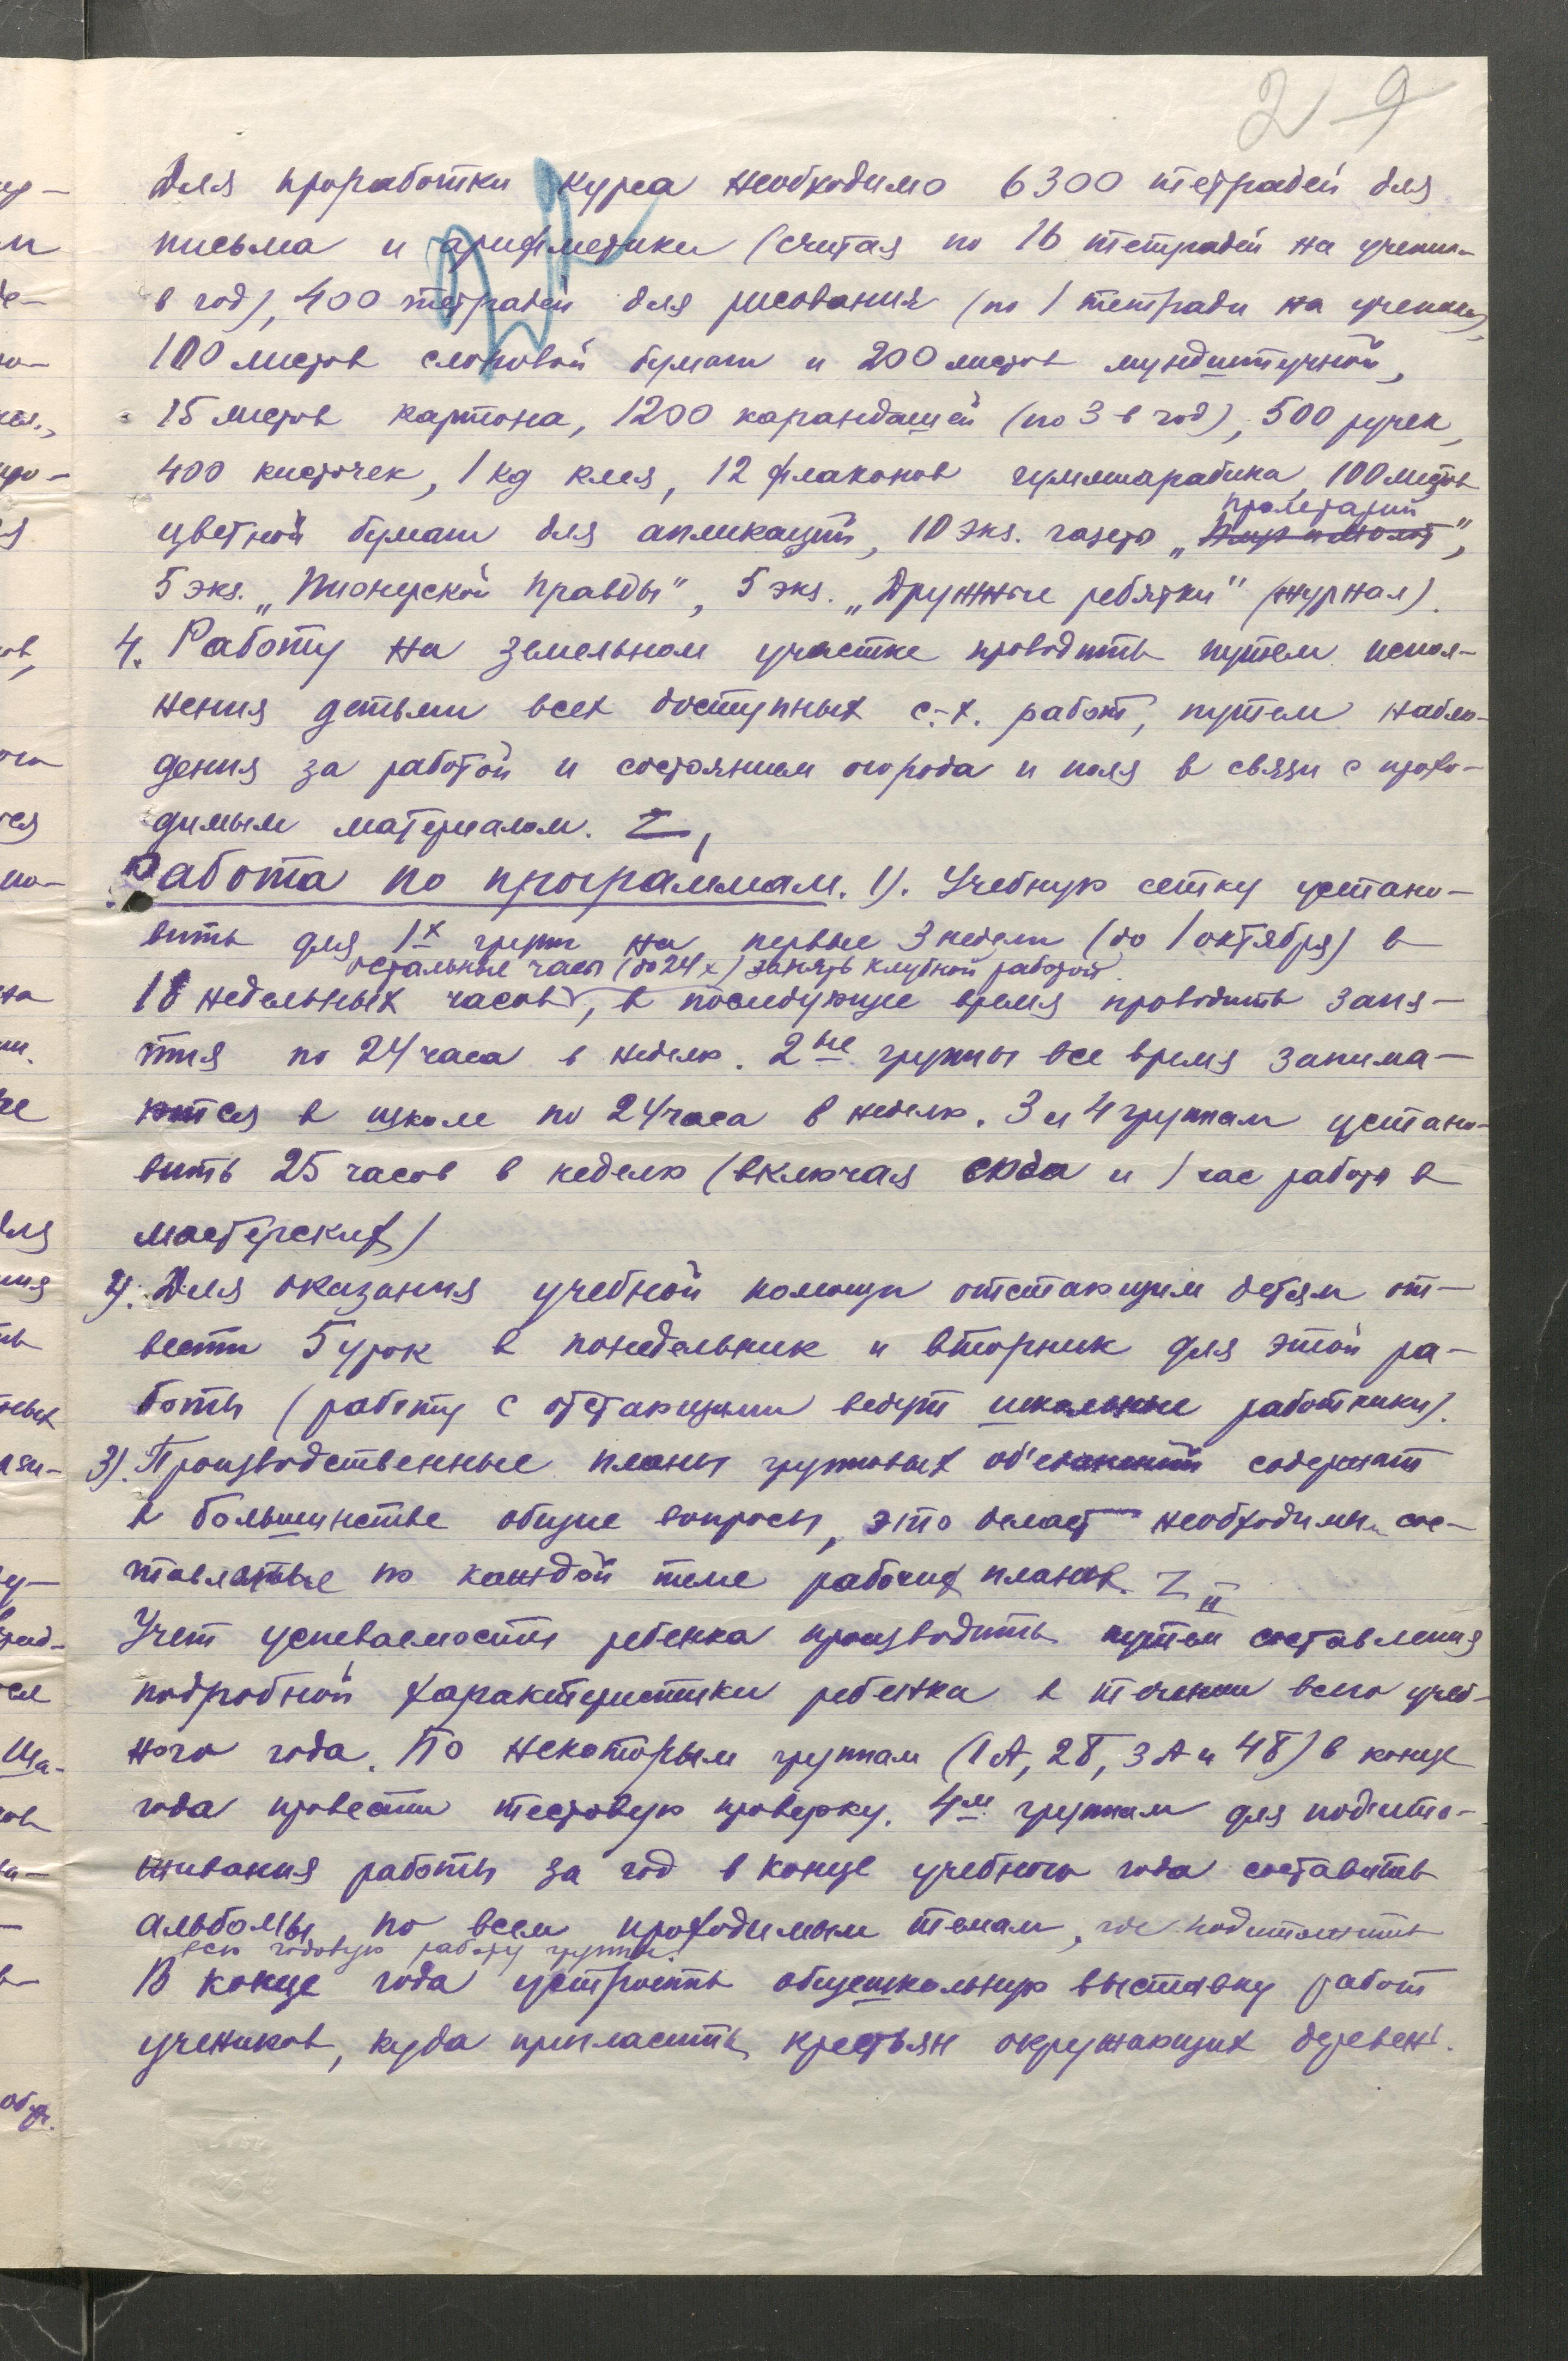 29
Для проработки курса необходимо 6300 тетрадей для
письма и арифметики (считая по 16 тетрадей на ученика
в год), 400 тетрадей для рисования (по 1 тетради на ученика),
100 листов слоновой бумаги и 200 листов мундштучной,
15 листов картона, 1200 карандашей (по 3 в год), 500 ручек,
400 кисточек, 1 kg клея, 12 флаконов гуммиарабика, 100 листов
пролетарий
цветной бумаги для апликаций, 10 экз. газеты „ ",
5 экз. „Пионерской Правды", 5 экз. „Дружные ребятки" (журнал).
4. Работу на земельном участке проводить путем испол-
нения детьми всех доступных с.-х. работ, путем наблю-
дения за работой и состоянием огорода и поля в связи с прохо-
димым материалом. Z I
Работа по программам. 1). Учебную сетку устано-
вить для 1х групп на первые 3 недели (до 1 октября) в
остальные часы (до 24х) занять клубной работой.
18 недельных часов, в последующее время проводить заня-
тия по 24 часа в неделю. 2ые группы все время занима-
ются в школе по 24 часа в неделю. 3 и 4 группам устано-
вить 25 часов в неделю (включая сюда и 1 час работы в
мастерских)
2). Для оказания учебной помощи отстающим детям от-
вести 5 урок в понедельник и вторник для этой ра-
боты (работу с отстающими ведут школьные работники).
3). Производственные планы групповых об'единений содержат
в большинстве общие вопросы, это делает необходимым сос-
тавление по каждой теме рабочих планов. Z II
Учет успеваемости ребенка производить путем составления
подробной характеристики ребенка в течении всего учеб-
ного года. По некоторым группам (1А, 2Б, 3А и 4Б) в конце
года провести тестовую проверку. 4м группам для подито-
живания работы за год в конце учебного года составить
альбомы по всем проходимым темам, где подитожить
всю годовую работу группы.
В конце года устроить общешкольную выставку работ
учеников, куда пригласить крестьян окружающих деревень.